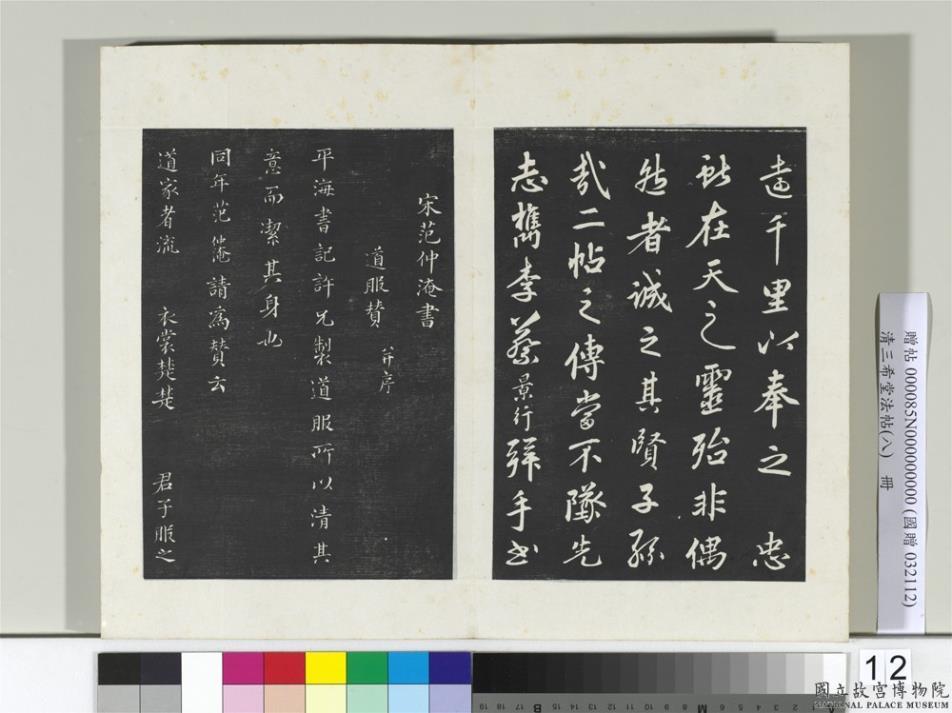 遠千里以奉之 忠
獻在天之靈殆非偶
然者誠之其賢子孫
哉二帖之傳當不墜先
志檇李蔡景行拜手書
宋范仲淹書
道服贊 并序
平海書記許兄製道服所以清其
意而潔其身也
同年范仲淹請為贊云
道家者流 衣裳楚楚 君子服之
贈帖 000085N000000000 (國贈 032112)
清三希堂法帖(八) 冊
12
國立故宮博物院
NATIONAL PALACE MUSEUM